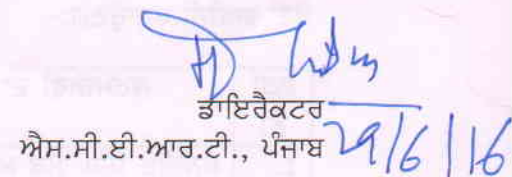 ਡਾਇਰੈਕਟਰ
ਐਸ.ਸੀ.ਈ.ਆਰ.ਟੀ., ਪੰਜਾਬ 29/6/16